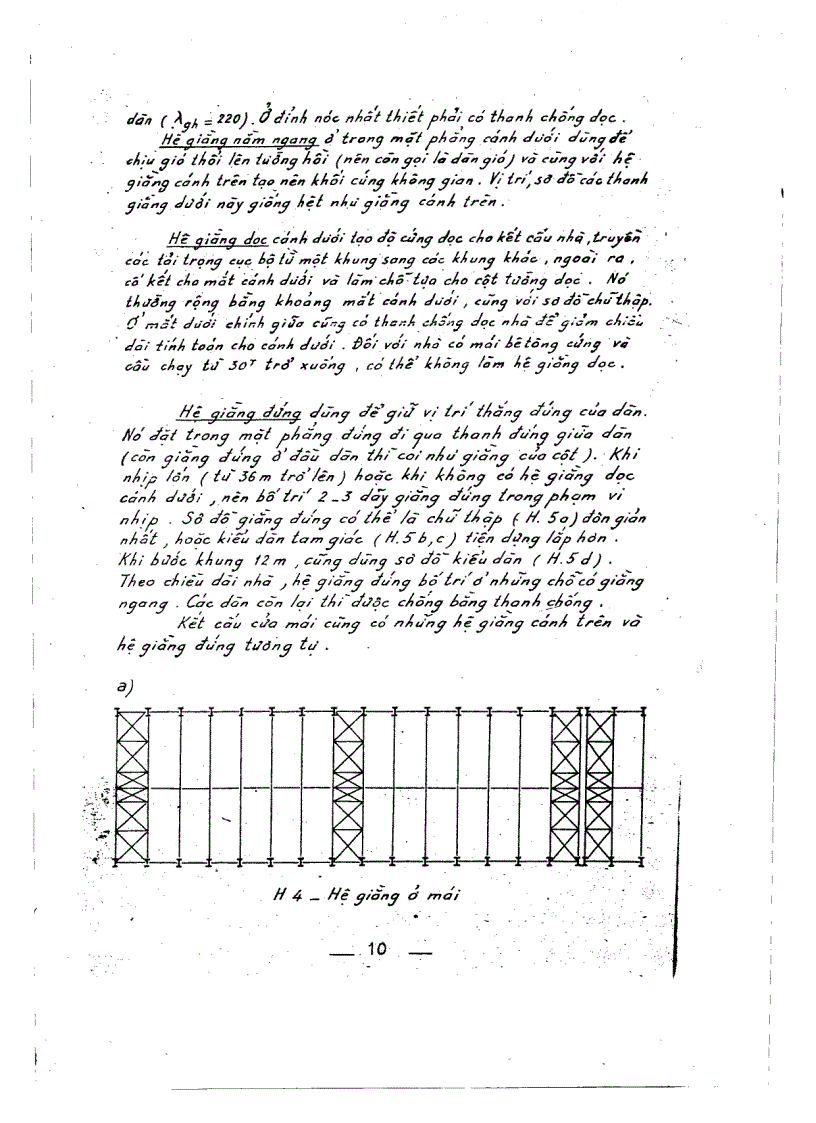 dàn ( λgh = 220). Ở đỉnh nóc nhất thiết phải có thanh chống dọc .
Hệ giằng nằm ngang ở trong mặt phẳng cánh dưới dùng để
chịu gió thổi lên tường hồi (nên còn gọi là dàn gió) và cùng với hệ
giằng cánh trên tạo nên khối cứng không gian . Vị trí, sơ đồ các thanh
giằng dưới này giống hệt như giằng cánh trên .
Hệ giằng dọc cánh dưới tạo độ cứng dọc cho kết cấu nhà , truyền
các tải trọng cục bộ từ một khung sang các khung khác , ngoài ra ,
cố kết cho mắt cánh dưới và làm chỗ tựa cho cột tường dọc . Nó
thường rộng bằng khoảng mắt cánh dưới , cũng với sơ đồ chữ thập.
Ở mắt dưới chính giữa cũng có thanh chống dọc nhà để giảm chiều
dài tính toán cho cánh dưới . Đối với nhà có mái bê tông cứng và
cầu chạy từ 30T trở xuống , có thể không làm hệ giằng dọc .
Hệ giằng đứng dùng để giữ vị trí thẳng đứng của dàn.
Nó đặt trong mặt phẳng đứng đi qua thanh đứng giữa dàn
(còn giằng đứng ở đầu dàn thì coi như giằng của cột ). Khi
nhịp lớn ( từ 36m trở lên ) hoặc khi không có hệ giằng dọc
cánh dưới , nên bố trí 2_3 dãy giằng đứng trong phạm vi
nhịp . Sơ đồ giằng đứng có thể là chữ thập ( H. 5a) đơn giản
nhất , hoặc kiểu dàn tam giác ( H.5b,c ) tiện dụng lắp hơn .
Khi bước khung 12m , cũng dùng sơ đồ kiểu dàn ( H.5d ) .
Theo chiều dài nhà , hệ giằng đứng bố trí ở những chỗ có giằng
ngang . Các dàn còn lại thì được chống bằng thanh chống .
Kết cấu cửa mái cũng có những hệ giằng cánh trên và
hệ giằng đứng tương tự .
a)
H 4 _ Hệ giằng ở mái
— 10 —